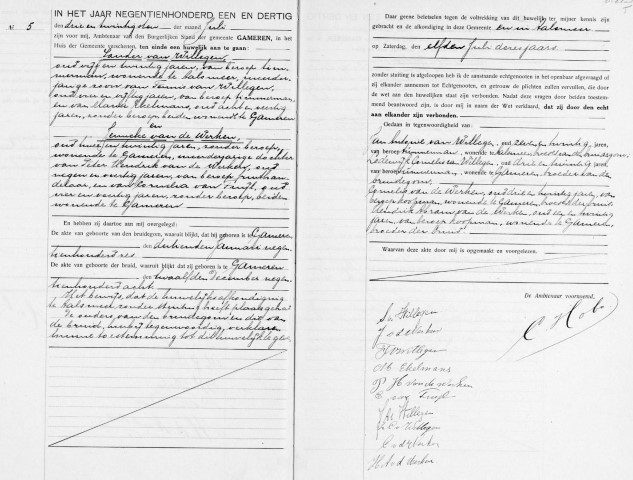 No 5
IN HET JAAR NEGENTIENHONDERD EEN EN DERTIG
den drie en twintigsten der maand Juli
zijn voor mij, Ambtenaar van den Burgerlijken Stand der gemeente GAMEREN, in het
Huis der Gemeente verschenen, ten einde een huwelijk aan te gaan:
Sander van Willigen,
oud vijf en twintig jaren, van beroep tim-
merman, wonende te Aalsmeer, meerder-
jarige zoon van Teunis van Willigen,
jaren, van beroep timmerman,
en van Maria Ekelmans, oud acht en veertig
jaren, zonder beroep, beiden wonende te Gameren
en
Jenneke van de Werken,
oud twee en twintig jaren, zonder beroep,
wonende te Gameren, minderjarige dochter
van Peter Hendrik van de Werken, oud
negen en veertig jaren, van beroep fruithan-
delaar, en van Cornelia van Tuijl, oud
en veertig jaren, zonder beroep, beiden
wonende te Gameren
En hebben zij daartoe aan mij overgelegd:
De akte van geboorte van den bruidegom, waaruit blijkt, dat hij geboren is te Gameren
den dertienden Januari negen-
tienhonderd zes
De akte van geboorte der bruid, waaruit blijkt dat zij geboren is te Gameren
den twaalfden December negen-
tienhonderd acht
Het bewijs, dat de huwelijksafkondiging
te Aalsmeer zonder stuiting heeft plaats gehad
De ouders van den bruidegom en die van
de bruid, hierbij tegenwoordig, verklaren
hunne toestemming tot dit huwelijk te geven.
Daar geene beletselen tegen de voltrekking van dit huwelijk te mijner kennis zijn
gebracht en de afkondiging in deze Gemeente en in Aalsmeer
op Zaterdag, den elfden Juli dezes jaars
zonder stuiting is afgeloopen heb ik de aanstaande echtgenooten in het openbaar afgevraagd of
zij elkander aannemen tot Echtgenooten, en getrouw de plichten zullen vervullen, die door
de wet aan den huwelijken staat zijn verbonden. Nadat deze vragen door beiden toestem-
mend beantwoord zijn, is door mij in naam der Wet verklaard, dat zij door den echt
aan elkander zijn verbonden.
Gedaan in tegenwoordigheid van:
van Willigen, oud en twintig, jaren,
van beroep timmerman, wonende te
Lodewijk Cornelis van Willigen, oud drie en twintig jaren,
van beroep timmerman, wonende te Gameren, broeder van den
bruidegom,
Cornelis van de Werken, oud drie en twintig jaren, van
beroep koopman, wonende te Gameren, broeder der bruid
van de Werken, oud een en twintig
jaren, van beroep koopman, wonende te Gameren,
broeder der bruid.
Waarvan deze akte door mij is opgemaakt en voorgelezen.
De Ambtenaar voornoemd,
v Willigen
J v d Werken
v Willigen
M Ekelmans
P H van de Werken
C van Tuijl
v Willigen
v Willigen
C v d Werken
v d Werken